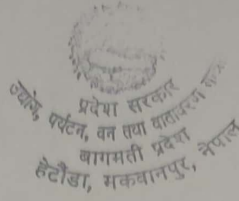 प्रदेश सरकार
उद्योग, पर्यटन, वन तथा वातावरण
बागमती प्रदेश
हेटौडा, मकवानपुर, नेपाल